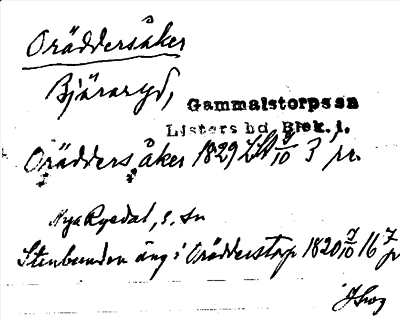 Oräddersåker
Bjäraryd,
Gammalstorps sn
Listers hd Blek. l.
Orädders åker 1829 LSt 9/10 3 pr.
Nya Ryedal, s. sn
Stenbunden äng i Orädderstorp 1820 7/10 16 7